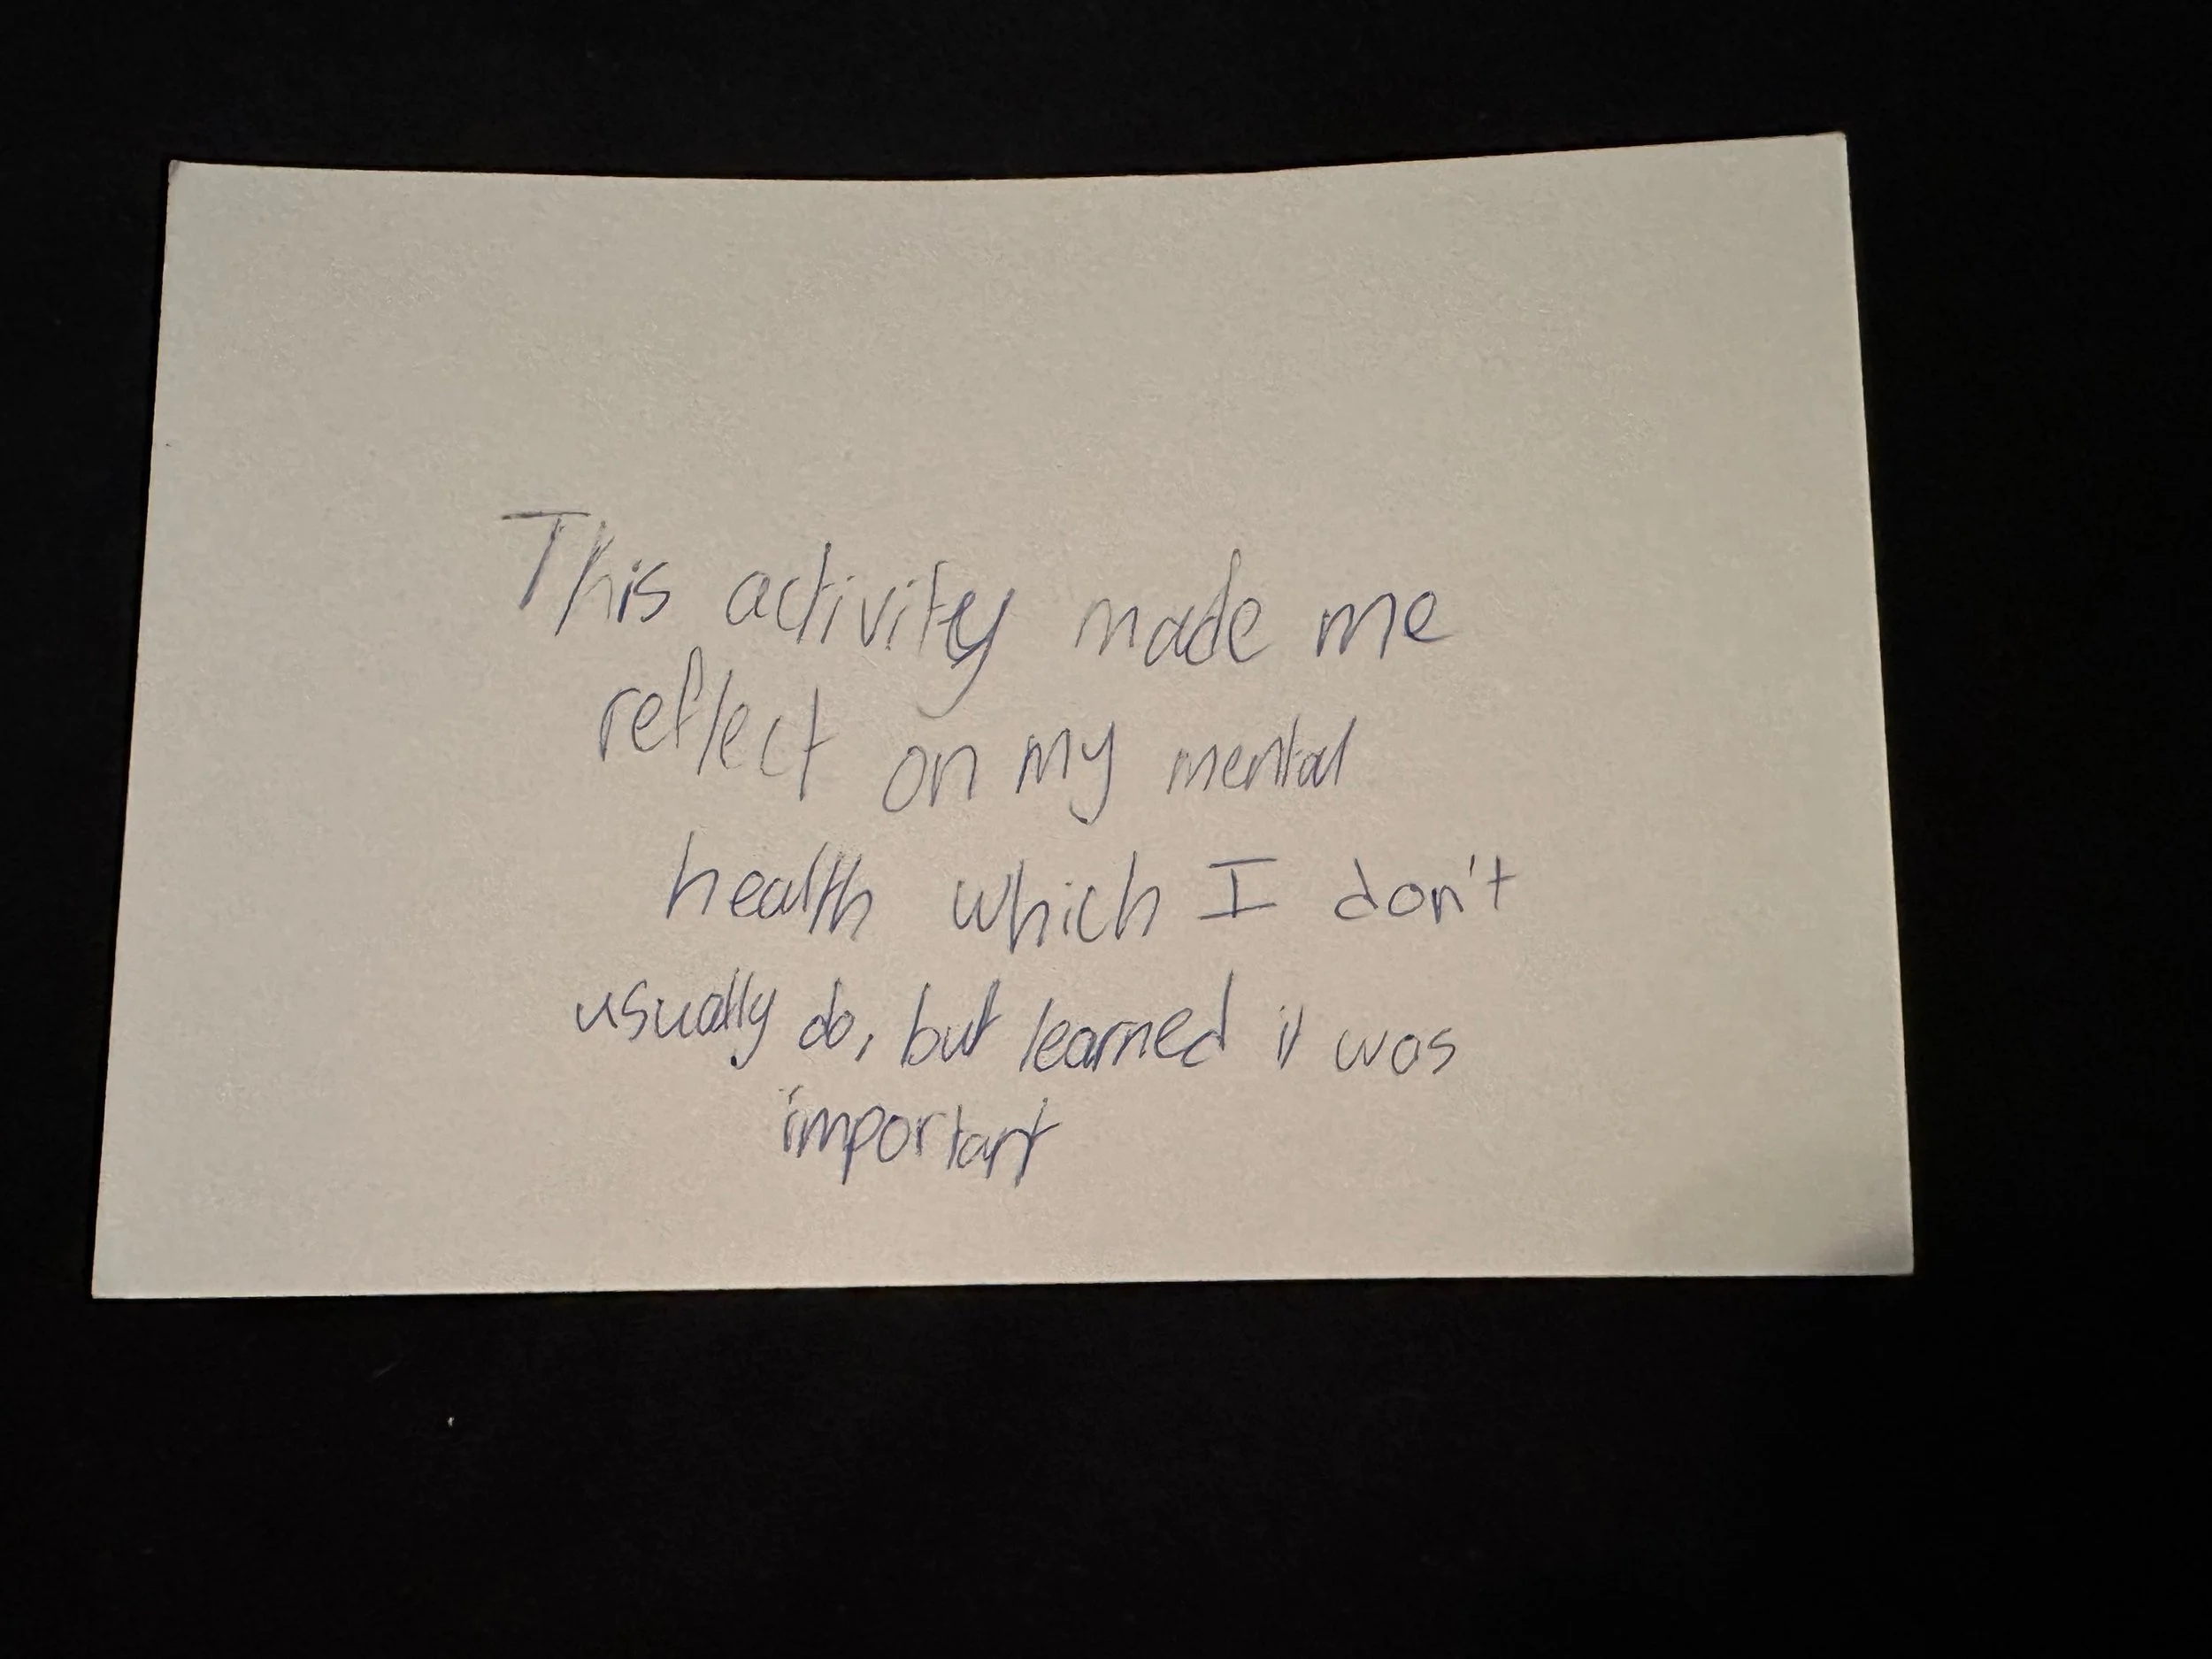 This activity made me
reflect on my mental
health which I don't
usually do, but learned it was
important